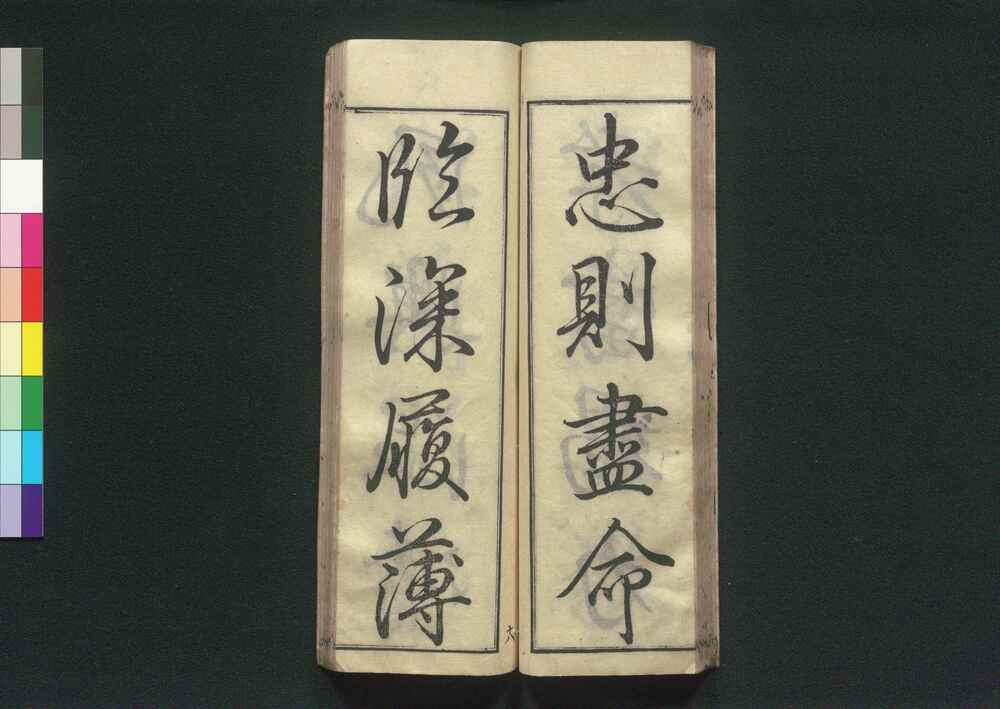 忠則盡命
臨深履薄
十八